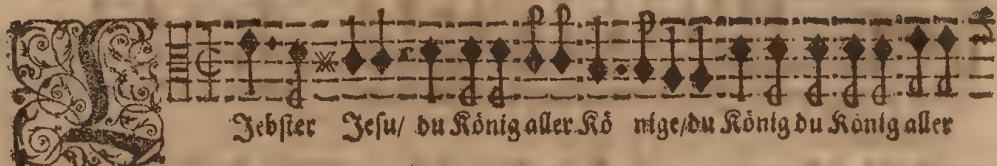 LJebster Jesu/ du König aller Kö nige/du König du König aller